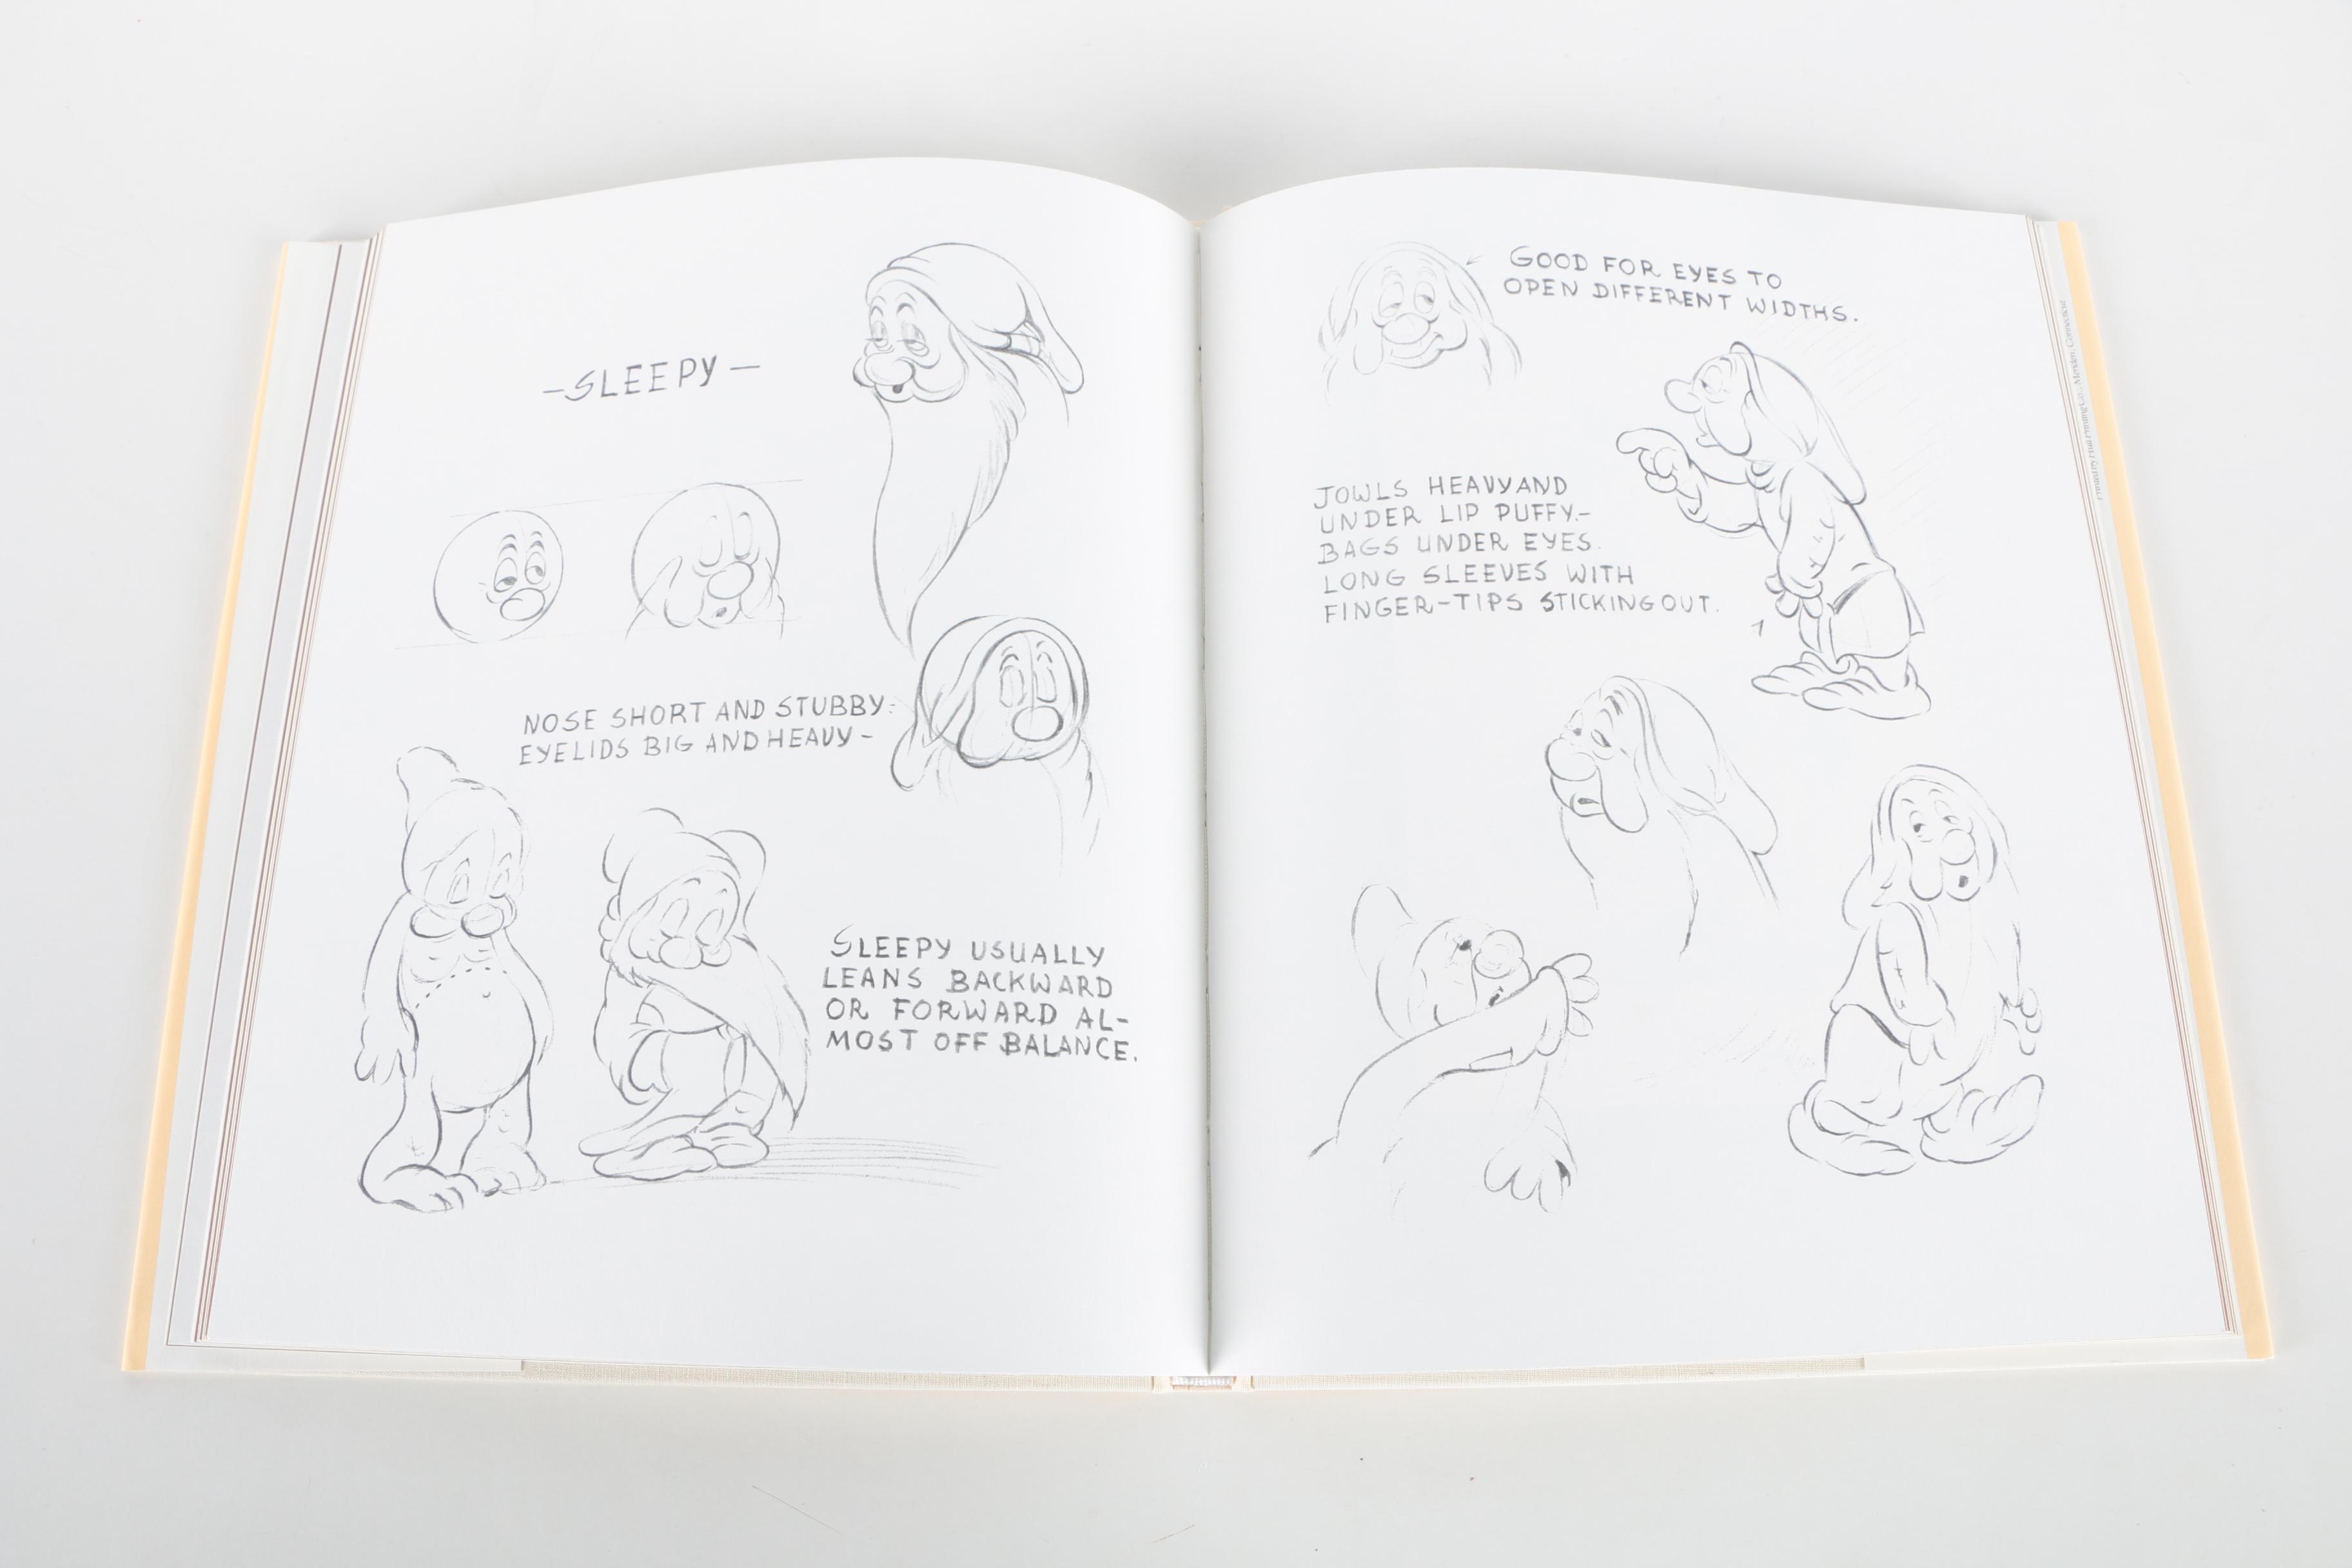 —SLEEPY—
NOSE SHORT AND STUBBY-
EYELIDS BIG AND HEAVY-
SLEEPY USUALLY
LEANS BACKWARD
OR FORWARD AL-
MOST OFF BALANCE.
GOOD FOR EYES TO
OPEN DIFFERENT WIDTHS.
JOWLS HEAVY AND
UNDER LIP PUFFY.-
BAGS UNDER EYES.
LONG SLEEVES WITH
FINGER-TIPS STICKING OUT.
Printed by Hull Printing Co., Meriden, Connecticut